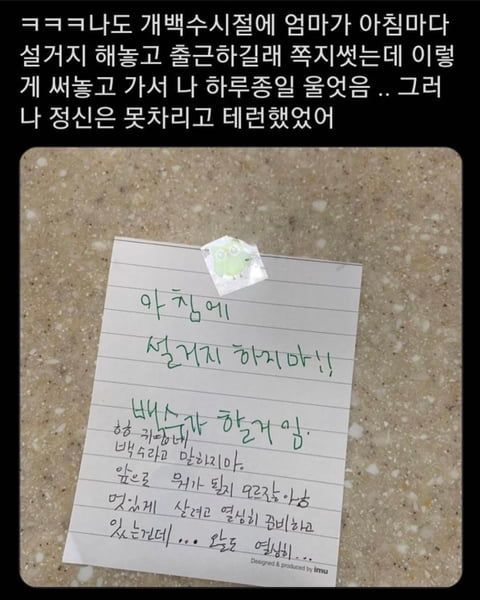 ㅋㅋㅋ나도 개백수시절에 엄마가 아침마다
설거지 해놓고 출근하길래 쪽지썻는데 이렇
게 써놓고 가서 나 하루종일 울엇음 .. 그러
나 정신은 못차리고 테런했었어
아침에
설거지 하지마!!
백수가 할거임.
ㅎㅎ 귀엽네
백수라고 말하지마.
앞으로 뭐가 될지 모르잖아
멋있게 살려고 열심히 준비하고
있는건데... 오늘도 열심히...
Designed & produced by imu